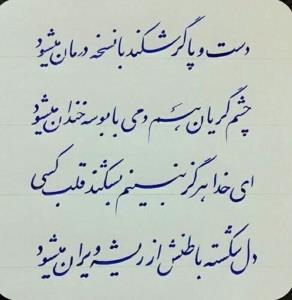 دست و پا گر بشکند با نسخه درمان میشود
چشم گریان هم دمی با بوسه خندان میشود
ای خدا هرگز نبینم بشکند قلب کسی
دل شکسته باطنش از ریشه ویران میشود